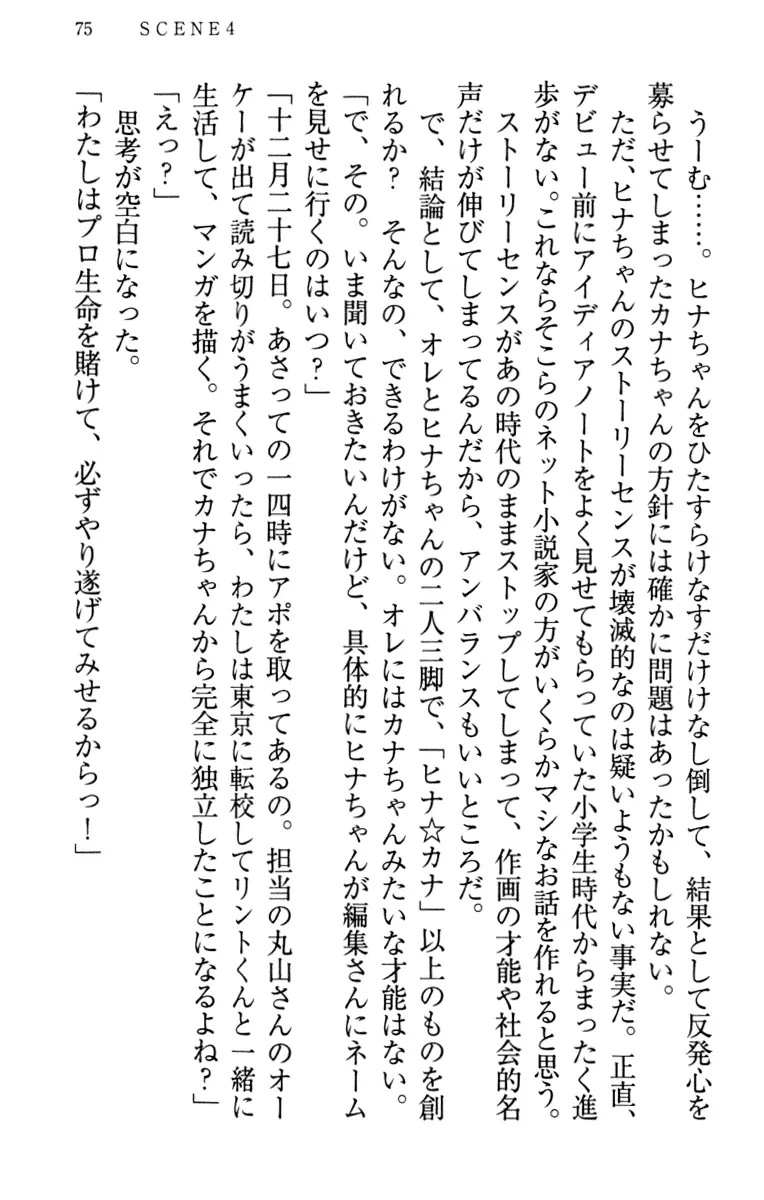 75　SCENE4
　うーむ……。ヒナちゃんをひたすらけなすだけけなし倒して、結果として反発心を
募らせてしまったカナちゃんの方針には確かに問題はあったかもしれない。
　ただ、ヒナちゃんのストーリーセンスが壊滅的なのは疑いようもない事実だ。正直、
デビュー前にアイディアノートをよく見せてもらっていた小学生時代からまったく進
歩がない。これならそこらのネット小説家の方がいくらかマシなお話を作れると思う。
　ストーリーセンスがあの時代のままストップしてしまって、作画の才能や社会的名
声だけが伸びてしまってるんだから、アンバランスもいいところだ。
　で、結論として、オレとヒナちゃんの二人三脚で、「ヒナ☆カナ」以上のものを創
れるか？　そんなの、できるわけがない。オレにはカナちゃんみたいな才能はない。
「で、その。いま聞いておきたいんだけど、具体的にヒナちゃんが編集さんにネーム
を見せに行くのはいつ？」
「十二月二十七日。あさっての一四時にアポを取ってあるの。担当の丸山さんのオー
ケーが出て読み切りがうまくいったら、わたしは東京に転校してリントくんと一緒に
生活して、マンガを描く。それでカナちゃんから完全に独立したことになるよね？」
「えっ？」
　思考が空白になった。
「わたしはプロ生命を賭けて、必ずやり遂げてみせるからっ！」